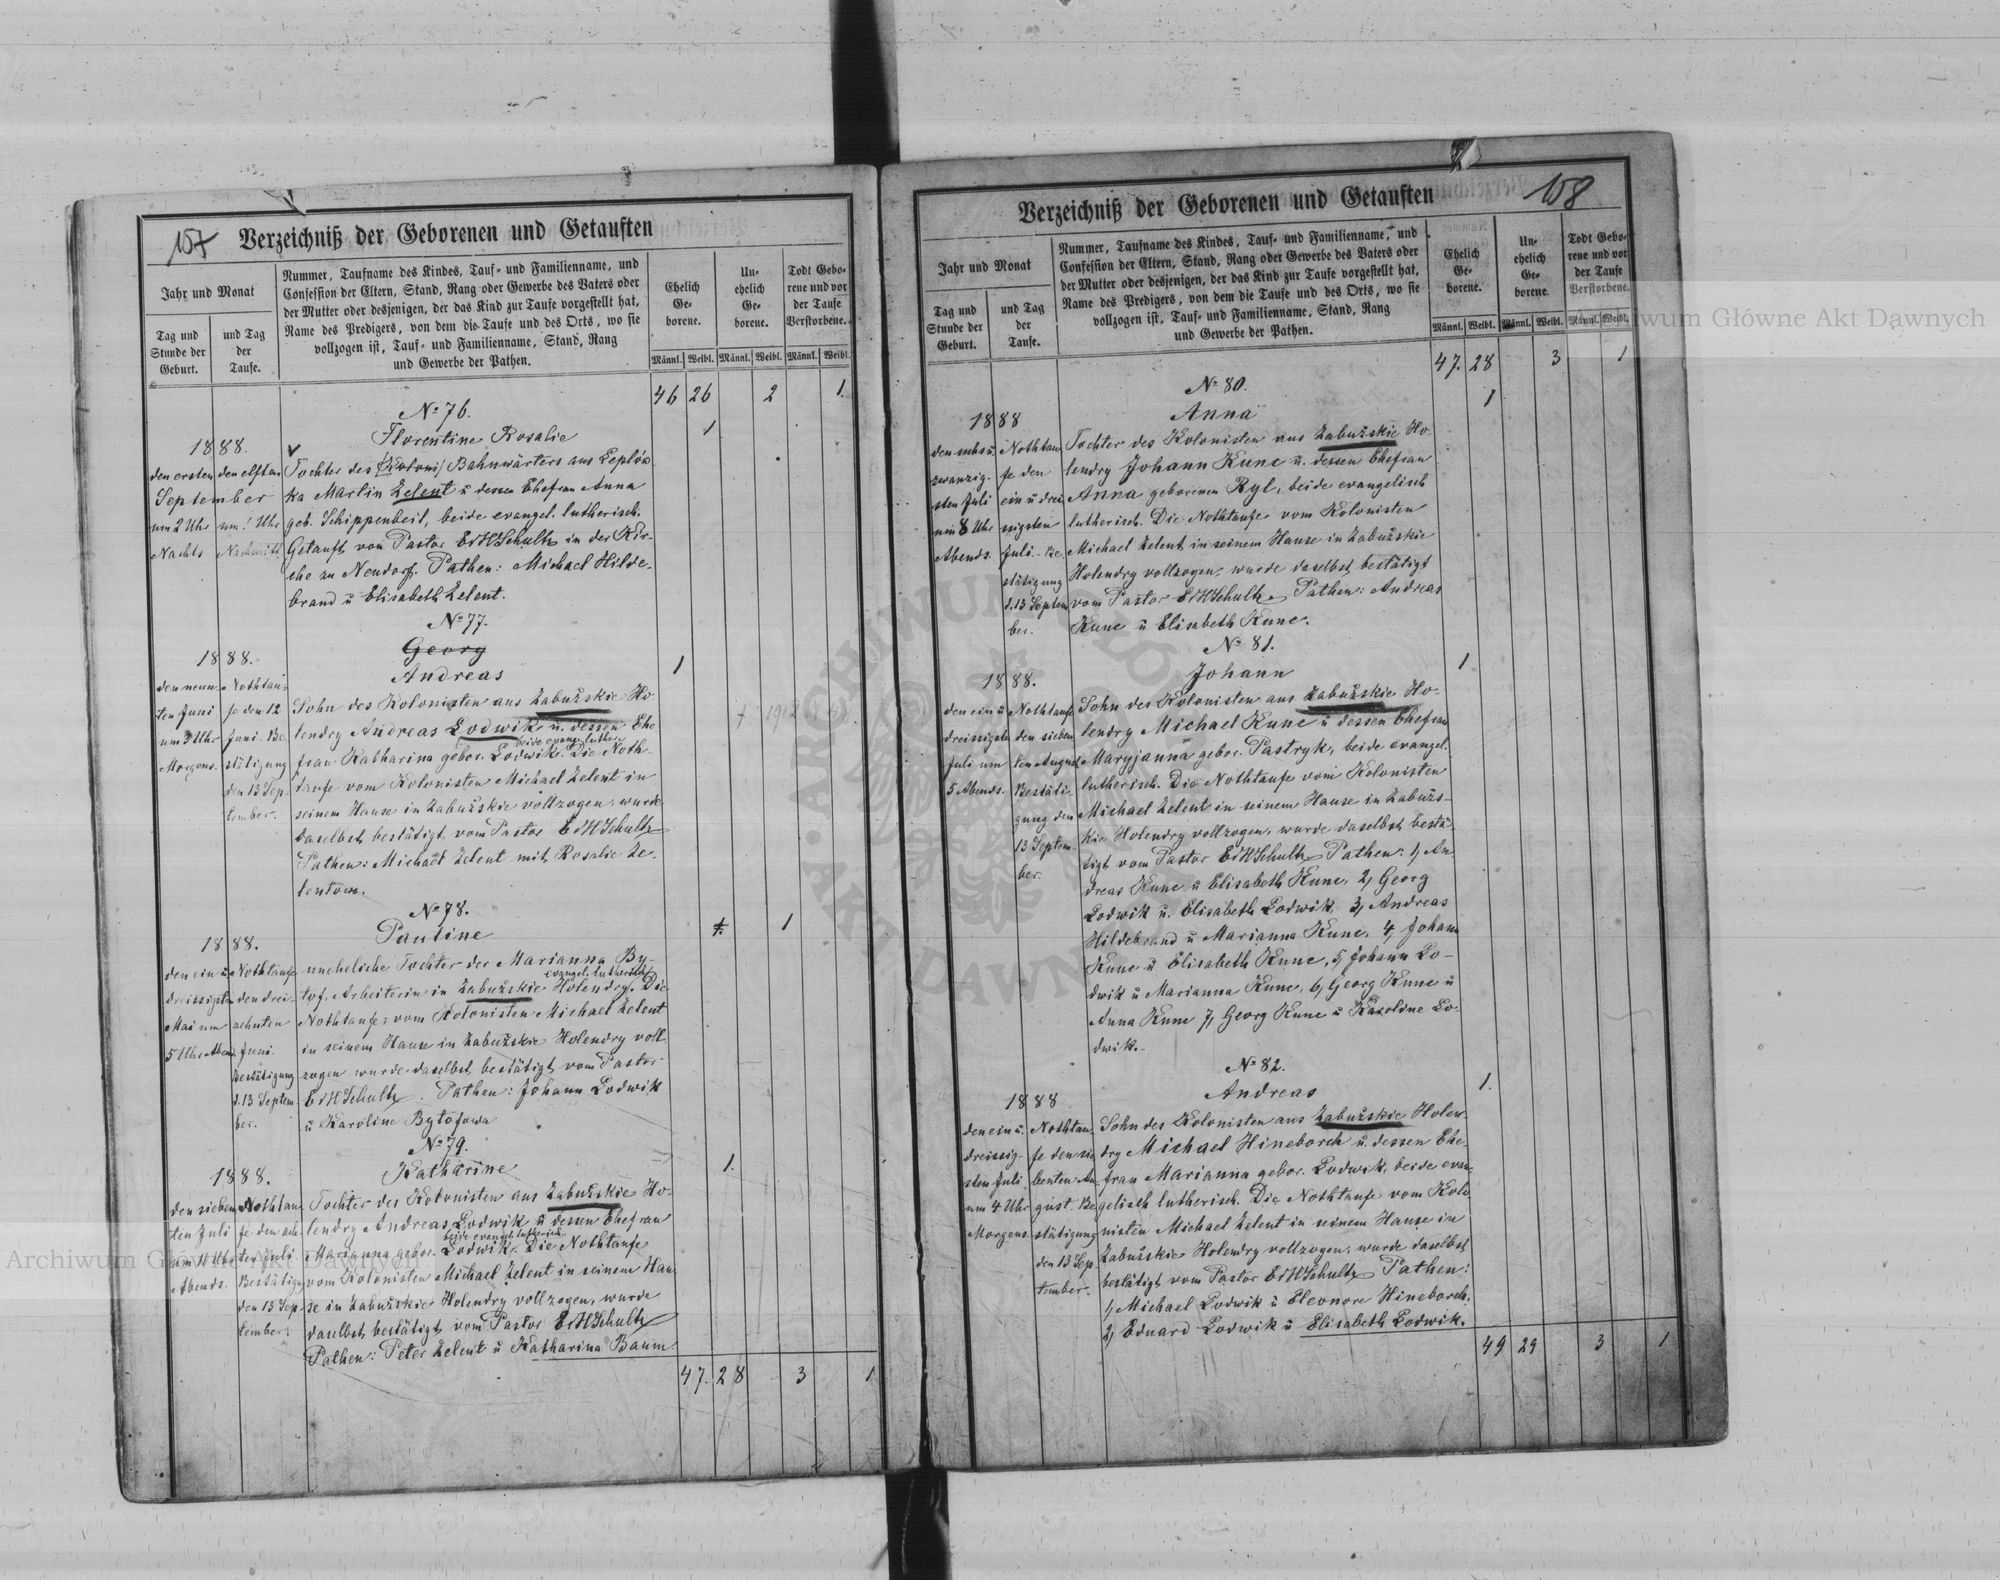 157
Verzeichniß der Geborenen und Getauften
Jahr und Monat
Tag und Stunde der Geburt.
und Tag der Taufe.
Nummer, Taufname des Kindes, Tauf- und Familienname, und
Confession der Eltern, Stand, Rang oder Gewerbe des Vaters oder
der Mutter oder desjenigen, der das Kind zur Taufe vorgestellt hat,
Name des Predigers, von dem die Taufe und des Orts, wo sie
vollzogen ist, Tauf- und Familienname, Stand, Rang
und Gewerbe der Pathen.
Ehelich Geborene.
Unehelich Geborene.
Todt Geborene und vor der Taufe Verstorbene.
Männl. Weibl. Männl. Weibl. Männl. Weibl.
46 26 2 1.
No 76.
Florentine Rosalie
1
1888.
den ersten
September
um 2 Uhr
Nachts
den elften
um 1 Uhr
Nachmitt.
Tochter des /Koloni/ Bahnwärters aus Leplów
ka Martin Zelent u dessen Ehefrau Anna
geb. Schippenbeil, beide evangel. lutherisch.
Getauft vom Pastor EdHSchultz in der Kir-
che zu Neudorf. Pathen: Michael Hilde-
brand u Elisabeth Zelent.
No 77.
Georg
Andreas
1
1888.
den neun-
ten Juni
um 3 Uhr
Morgens.
Nothtau-
fe den 12
Juni. Be
stätigung
den 13 Sep
tember.
Sohn des Kolonisten aus Zabužskie Ho
lendry Andreas Lodwik u. dessen Ehe
beide evang. luther.
frau Katharina gebor. Lodwik. Die Noth-
taufe vom Kolonisten Michael Zelent in
seinem Hause in Zabužskie vollzogen, wurde
daselbst bestätigt vom Pastor EdHSchultz
Pathen: Michael Zelent mit Rosalie Ze-
lentowa.
No 78.
Pauline
1. 1
1888.
den ein u
dreissigsten
Mai um
5 Uhr Abend.
Nothtaufe
den drei-
zehnten
Juni
Bestätigung
d. 13 Septem
ber.
uneheliche Tochter der Marianna By-
evangel. lutherisch
tof. Arbeiterin in Zabužskie Holendry. Die
Nothtaufe, vom Kolonisten Michael Zelent
in seinem Hause in Zabužskie Holendry voll
zogen wurde daselbst bestätigt vom Pastor
EdHSchultz. Pathen: Johann Lodwik
u Karoline Bytofowa
No 79.
Katharine
1.
1888.
den sieben
ten Juli
um 11 Uhr
Abends.
Nothtau
fe den ach
ten Juli.
Bestätigung
den 13 Sep
tember.
Tochter des Kolonisten aus Zabužskie Ho-
lendry Andreas Lodwik u dessen Ehefrau
beide evangel. lutherisch
Marianna gebor. Lodwik. Die Nothtaufe
vom Kolonisten Michael Zelent in seinem Hau
se in Zabužskie Holendry vollzogen, wurde
daselbst bestätigt vom Pastor EdHSchultz
Pathen: Peter Zelent u Katharina Baum
47. 28 3 1
158
Verzeichniß der Geborenen und Getauften
Jahr und Monat
Tag und Stunde der Geburt.
und Tag der Taufe.
Nummer, Taufname des Kindes, Tauf- und Familienname, und
Confession der Eltern, Stand, Rang oder Gewerbe des Vaters oder
der Mutter oder desjenigen, der das Kind zur Taufe vorgestellt hat,
Name des Predigers, von dem die Taufe und des Orts, wo sie
vollzogen ist, Tauf- und Familienname, Stand, Rang
und Gewerbe der Pathen.
Ehelich Geborene.
Unehelich Geborene.
Todt Geborene und vor der Taufe Verstorbene.
Männl. Weibl. Männl. Weibl. Männl. Weibl.
47. 28 3 1
No 80.
Anna
1
1888
den sechs u.
zwanzig-
sten Juli
um 8 Uhr
Abends.
Nothtau
fe den
ein u drei
ssigsten
Juli. Be
stätigung
d. 13 Septem
ber.
Tochter des Kolonisten aus Zabužskie Ho-
lendry Johann Kunc u. dessen Ehefrau
Anna geborenen Ryl, beide evangelisch
lutherisch. Die Nothtaufe vom Kolonisten
Michael Zelent in seinem Hause in Zabužskie
Holendry vollzogen, wurde daselbst bestätigt
vom Pastor EdHSchultz Pathen: Andreas
Kunc u Elisabeth Kunc.
No 81.
Johann
1
1888.
den ein u
dreissigsten
Juli um
5 Abends.
Nothtaufe
den sieben
ten August
Bestäti-
gung den
13 Septem-
ber.
Sohn des Kolonisten aus Zabužskie Ho-
lendry Michael Kunc u dessen Ehefrau
Maryjanna gebor. Pastryk, beide evangel.
lutherisch. Die Nothtaufe vom Kolonisten
Michael Zelent in seinem Hause in Zabužs-
kie Holendry vollzogen, wurde daselbst bestä
tigt vom Pastor EdHSchultz Pathen: 1, An
dreas Kunc u Elisabeth Kunc, 2, Georg
Lodwik u. Elisabeth Lodwik, 3, Andreas
Hildebrand u Marianna Kunc, 4, Johann
Kunc u Elisabeth Kunc, 5, Johann Lo-
dwik u Marianna Kunc, 6, Georg Kunc u
Anna Kunc 7, Georg Kunc u Karoline Lo-
dwik.-
No 82.
Andreas
1.
1888
den ein u.
dreissig-
sten Juli
um 4 Uhr
Morgens.
Nothtau
fe den sie
benten Au
gust. Be
stätigung
den 13 Sep
tember.
Sohn des Kolonisten aus Zabužskie Holen-
dry Michael Hineborch u. dessen Ehe
frau Marianna gebor. Lodwik, beide evan-
gelisch lutherisch. Die Nothtaufe vom Kolo
nisten Michael Zelent in seinem Hause in
Zabužskie Holendry vollzogen, wurde daselbst
bestätigt vom Pastor EdHSchultz Pathen:
1, Michael Lodwik u Eleonore Hineborch,
2, Eduard Lodwik u Elisabeth Lodwik.
49 29 3 1
Archiwum Główne Akt Dawnych